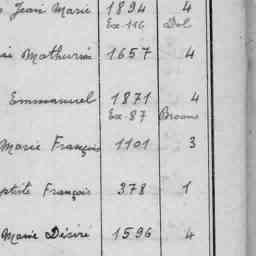 Jean Marie 1894 4
Ex-116 Dol
Mathurin 1657 4
Emmanuel 1871 4
Ex-87 Broons
Marie François 1101 3
François 378 1
Marie Désiré 1596 4